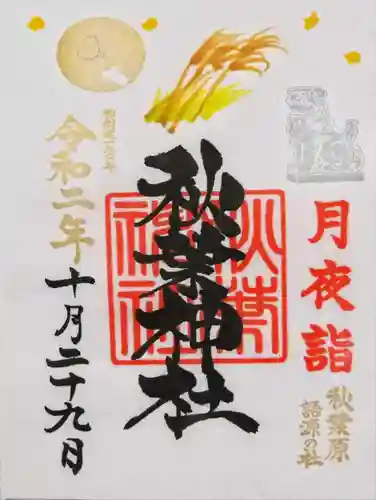 月夜詣
秋葉原
語源の社
秋葉神社
秋葉神社
令和二年
十月二十九日